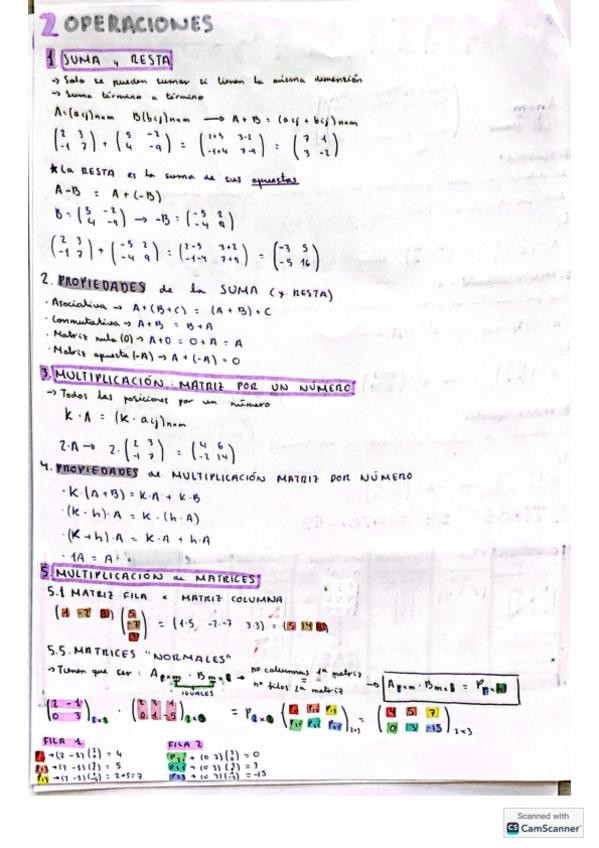 2 OPERACIONES
1 SUMA y RESTA
→ Solo se pueden sumar si tienen la misma dimensión
→ Suma término a término
A=(aij)nxm B(bij)nxm → A + B = (aij + bij)nxm
(2 3 / -1 7) + (5 -2 / 4 -9) = (2+5 3-2 / -1+4 7-9) = (7 1 / 3 -2)
* La RESTA es la suma de sus opuestas
A-B = A + (-B)
B = (5 -2 / 4 -9) → -B = (-5 2 / -4 9)
(2 3 / -1 7) + (-5 2 / -4 9) = (2-5 3+2 / -1-4 7+9) = (-3 5 / -5 16)
2. PROPIEDADES de la SUMA (y RESTA)
· Asociativa → A+(B+C) = (A+B)+C
· Conmutativa → A+B = B+A
· Matriz nula (0) → A+0 = 0+A = A
· Matriz opuesta (-A) → A + (-A) = 0
3. MULTIPLICACIÓN: MATRIZ POR UN NÚMERO
→ Todos las posiciones por un número
K · A = (K · aij)nxm
2·A → 2·(2 3 / -1 7) = (4 6 / -2 14)
4. PROPIEDADES de MULTIPLICACIÓN MATRIZ POR NÚMERO
· K·(A+B) = K·A + K·B
· (K·h)·A = K·(h·A)
· (K+h)·A = K·A + h·A
· 1A = A
5. MULTIPLICACIÓN de MATRICES
5.1 MATRIZ FILA x MATRIZ COLUMNA
= (1·5 -2·-7 3·3) =
5.5. MATRICES "NORMALES"
→ Tienen que ser: · → no columnas 1a matriz
no filas 2a matriz
IGUALES
(2 -1 / 0 3)2x2 · = = (4 5 7 / 0 3 -15)2x3
FILA 1 FILA 2
= 4 = 0
= 5 = 3
= 2+5=7 = -15
Scanned with
CS CamScanner